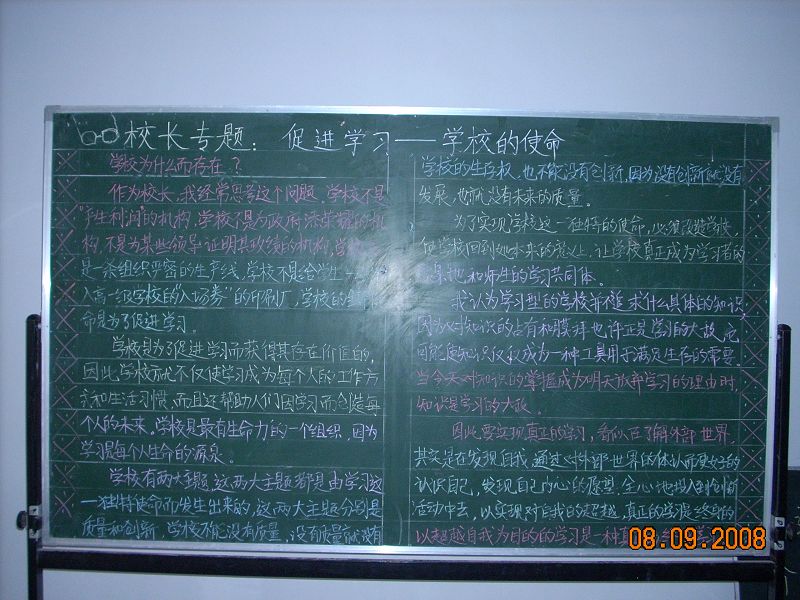 校长专题：促进学习——学校的使命
学校为什么而存在？
作为校长，我经常思考这个问题，学校不是
产生利润的机构，学校不是为政府添荣耀的机
构，不是为某些领导证明其政绩的机构，学
是一条组织严密的生产线，学校不是给学生
入高一级学校的“入场券”的印刷厂，学校的
命是为了促进学习。
学校是为了促进学习而获得其存在价值的，
因此，学校就不仅使学习成为每个人的工作方
式和生活习惯，而且还帮助人们因学习而创造每
个人的未来。学校是最有生命力的一个组织，因为
学习是每个人生命的源泉。
学校有两大主题，这两大主题都是由学习这
一独特使命而发生出来的，这两大主题分别是
质量和创新，学校不能没有质量，没有质量就没有
学校的生存权，也不能没有创新，因为没有创新就没有
发展，也就没有未来的质量。
为了实现学校这一独特的使命，必须改造学校，
使学校回到她本来的意义上，让学校真正成为学习者的
和师生的学习共同体。
我认为学习型的学校并不追求什么具体的知识，
因为对知识的占有和膜拜也许正是学习的大敌，它
可能使知识仅仅成为一种工具用于满足生存的需要。
当今天对知识的掌握成为明天放弃学习的理由时，
知识是学习的大敌。
因此，要实现真正的学习，看似在了解外部世界，
其实是在发现自我，通过对外部世界的体认而更好的
认识自己，发现自己内心的愿望，全心地投入到创新
活动中去，以实现对自我的超越，真正的学习是终身的
以超越自我为目的的学习是一种真
08.09.2008